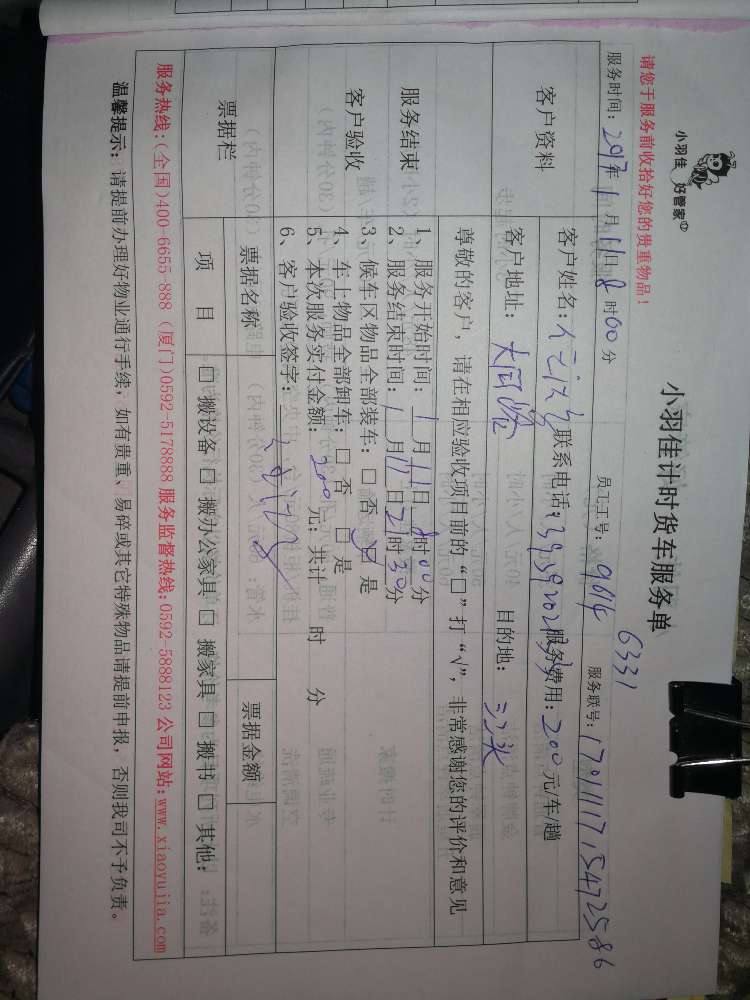 小羽佳 好管家
小羽佳计时货车服务单
6331
请您于服务前收拾好您的贵重物品！
服务时间： 2017年 1月11日8时00分 员工工号：9014 服务联号：
客户资料
客户姓名： 联系电话： 服务费用：200元/车/趟
客户地址： 目的地：
尊敬的客户，请在相应验收项目前的“□”打“√”，非常感谢您的评价和意见
服务结束
客户验收
1、服务开始时间：1月11日8时00分
2、服务结束时间：1月11日 时30分
3、候车区物品全部装车：□ 否 □ 是
4、车上物品全部卸车：□ 否 □ 是
5、本次服务实付金额：200元；共计 时 分
6、客户验收签字：
票据栏
票据名称 票据金额
项 目 □ 搬设备 □ 搬办公家具 □ 搬家具 □ 搬书 □ 其他：
服务热线：(全国)400-6655-888 (厦门)0592-5178888 服务监督热线：0592-5888123 公司网站：www.xiaoyujia.com
温馨提示：请提前办理好物业通行手续，如有贵重、易碎或其它特殊物品请提前申报，否则我司不予负责。